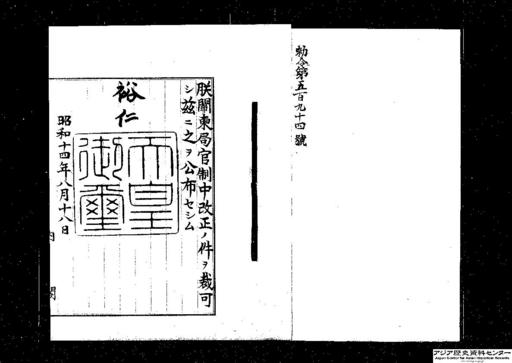 勅令第五百九十四號
朕關東局官制中改正ノ件ヲ裁可
シ茲ニ之ヲ公布セシム
裕仁
天皇
御璽
昭和十四年八月十八日
内閣
アジア歴史資料センター
Japan Center for Asian Historical Records